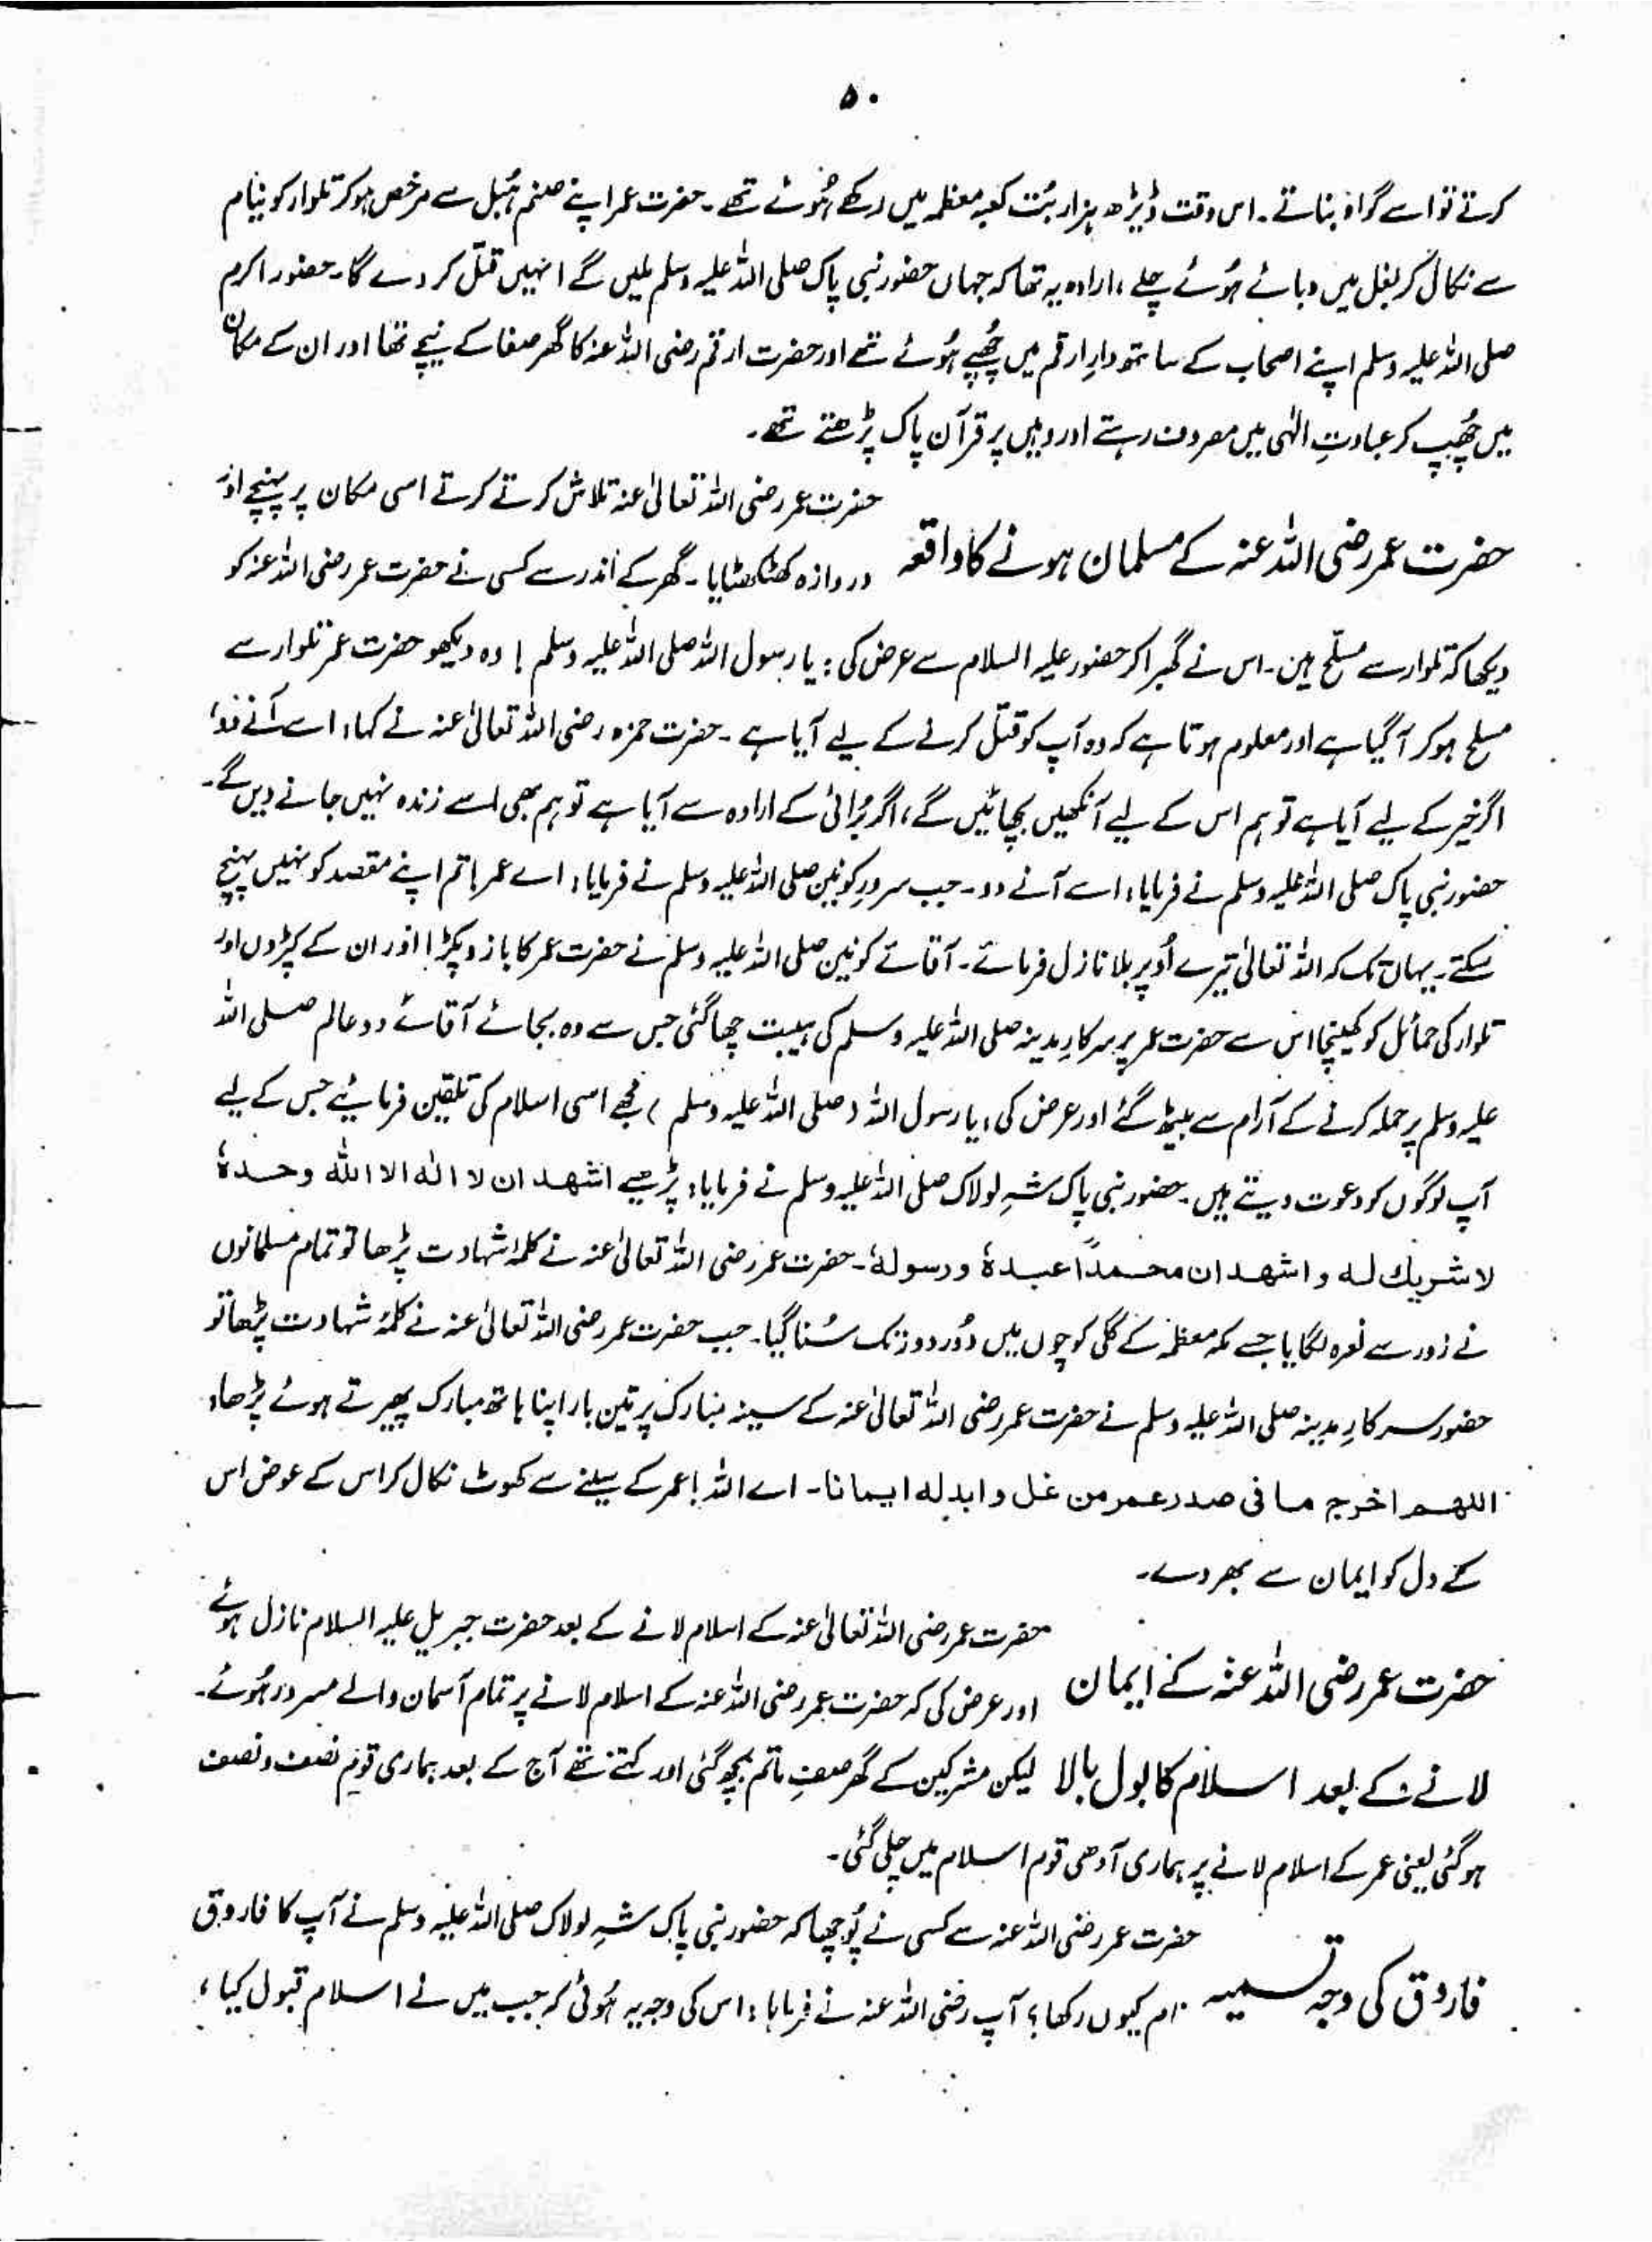 ۵۰
کرتے تو اسے گواہ بناتے۔ اس وقت ڈیڑھ ہزار بُت کعبہ معظمہ میں رکھے ہُوئے تھے۔ حضرت عمر اپنے صنم ہُبل سے مرخص ہوکر تلوار کو نیام
سے نکال کر بغل میں دبائے ہُوئے چلے، ارادہ یہ تھا کہ جہاں حضور نبی پاک صلی اللہ علیہ وسلم ملیں گے انہیں قتل کر دے گا۔ حضور اکرم
صلی اللہ علیہ وسلم اپنے اصحاب کے ساتھ دارِ ارقم میں چُھپے ہُوئے تھے اور حضرت ارقم رضی اللہ عنہ کا گھر صفا کے نیچے تھا اور ان کے مکان
میں چُھپ کر عبادتِ الٰہی میں مصروف رہتے اور وہیں پر قرآن پاک پڑھتے تھے۔
حضرت عمر رضی اللہ عنہ کے مسلمان ہونے کا واقعہ
حضرت عمر رضی اللہ تعالیٰ عنہ تلاش کرتے کرتے اسی مکان پر پہنچے اور
دروازہ کھٹکھٹایا۔ گھر کے اندر سے کسی نے حضرت عمر رضی اللہ عنہ کو
دیکھا کہ تلوار سے مسلّح ہین۔ اس نے گبھرا کر حضور علیہ السلام سے عرض کی: یا رسول اللہ صلی اللہ علیہ وسلم! وہ دیکھو حضرت عمر تلوار سے
مسلح ہوکر آ گیا ہے اور معلوم ہوتا ہے کہ وہ آپ کو قتل کرنے کے لیے آیا ہے۔ حضرت حمزہ رضی اللہ تعالیٰ عنہ نے کہا: اسے آنے دو،
اگر خیر کے لیے آیا ہے تو ہم اس کے لیے آنکھیں بچھائیں گے، اگر بُرائی کے ارادہ سے آیا ہے تو ہم بھی اسے زندہ نہیں جانے دیں گے۔
حضور نبی پاک صلی اللہ علیہ وسلم نے فرمایا: اسے آنے دو۔ جب سرورِ کونین صلی اللہ علیہ وسلم نے فرمایا: اے عمر! تم اپنے مقصد کو نہیں پہنچ
سکتے۔ یہاں تک کہ اللہ تعالیٰ تیرے اُوپر بلا نازل فرمائے۔ آقائے کونین صلی اللہ علیہ وسلم نے حضرت عمر کا بازو پکڑا اور ان کے کپڑوں اور
تلوار کی حمائل کو کھینچا اس سے حضرت عمر پر سرکارِ مدینہ صلی اللہ علیہ وسلم کی ہیبت چھا گئی جس سے وہ بجائے آقائے دو عالم صلی اللہ
علیہ وسلم پر حملہ کرنے کے آرام سے بیٹھ گئے اور عرض کی: یا رسول اللہ (صلی اللہ علیہ وسلم) مجھے اسی اسلام کی تلقین فرمائیے جس کے لیے
آپ لوگوں کو دعوت دیتے ہیں۔ حضور نبی پاک شہِ لولاک صلی اللہ علیہ وسلم نے فرمایا: پڑھیے اشھد ان لا الٰہ الا اللہ وحدہٗ
لا شریك لہ و اشھد ان محمدًا عبدہٗ ورسولہٗ۔ حضرت عمر رضی اللہ تعالیٰ عنہ نے کلمۂ شہادت پڑھا تو تمام مسلمانوں
نے زور سے نعرہ لگایا جسے مکہ معظمہ کے گلی کوچوں میں دُور دور تک سُنا گیا۔ جب حضرت عمر رضی اللہ تعالیٰ عنہ نے کلمۂ شہادت پڑھا تو
حضور سرکارِ مدینہ صلی اللہ علیہ وسلم نے حضرت عمر رضی اللہ تعالیٰ عنہ کے سینہ مبارک پر تین بار اپنا ہاتھ مبارک پھیرتے ہوئے پڑھا:
اللھم اخرج ما فی صدر عمر من غل و ابدلہ ایمانا۔ اے اللہ! عمر کے سینے سے کھوٹ نکال کر اس کے عوض اس
کے دل کو ایمان سے بھر دے۔
حضرت عمر رضی اللہ عنہ کے ایمان
حضرت عمر رضی اللہ تعالیٰ عنہ کے اسلام لانے کے بعد حضرت جبریل علیہ السلام نازل ہوئے
اور عرض کی کہ حضرت عمر رضی اللہ عنہ کے اسلام لانے پر تمام آسمان والے مسرور ہُوئے۔
لانے کے بعد اسلام کا بول بالا لیکن مشرکین کے گھر صفِ ماتم بچھ گئی اور کہتے تھے آج کے بعد ہماری قوم نصف و نصف
ہوگئی یعنی عمر کے اسلام لانے پر ہماری آدھی قوم اسلام میں چلی گئی۔
فاروق کی وجہ تسمیہ
حضرت عمر رضی اللہ عنہ سے کسی نے پُوچھا کہ حضور نبی پاک شہِ لولاک صلی اللہ علیہ وسلم نے آپ کا فاروق
نام کیوں رکھا؟ آپ رضی اللہ عنہ نے فرمایا: اس کی وجہ یہ ہُوئی کہ جب میں نے اسلام قبول کیا،